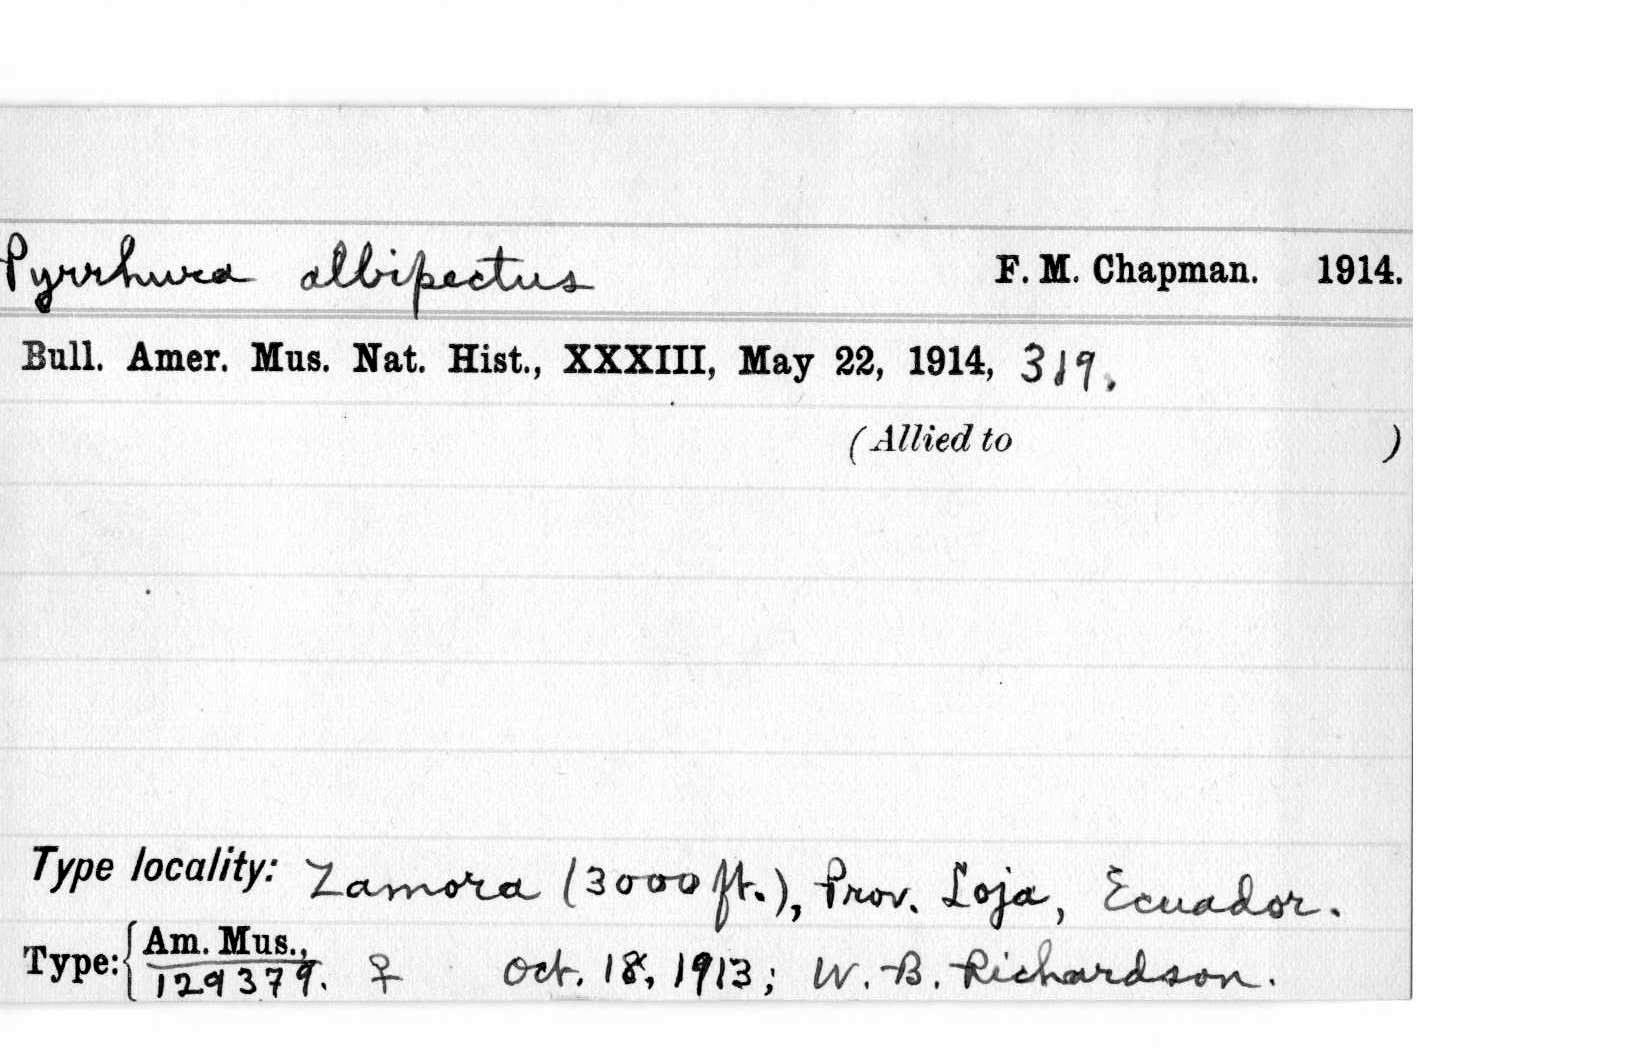 Pyrrhura albipectus F. M. Chapman. 1914.
Bull. Amer. Mus. Nat. Hist., XXXIII, May 22, 1914, 319.
(Allied to )
Type locality: Zamora (3000 ft.), Prov. Loja, Ecuador.
Type: { Am. Mus.,
129379. ♀ Oct. 18, 1913; W. B. Richardson.